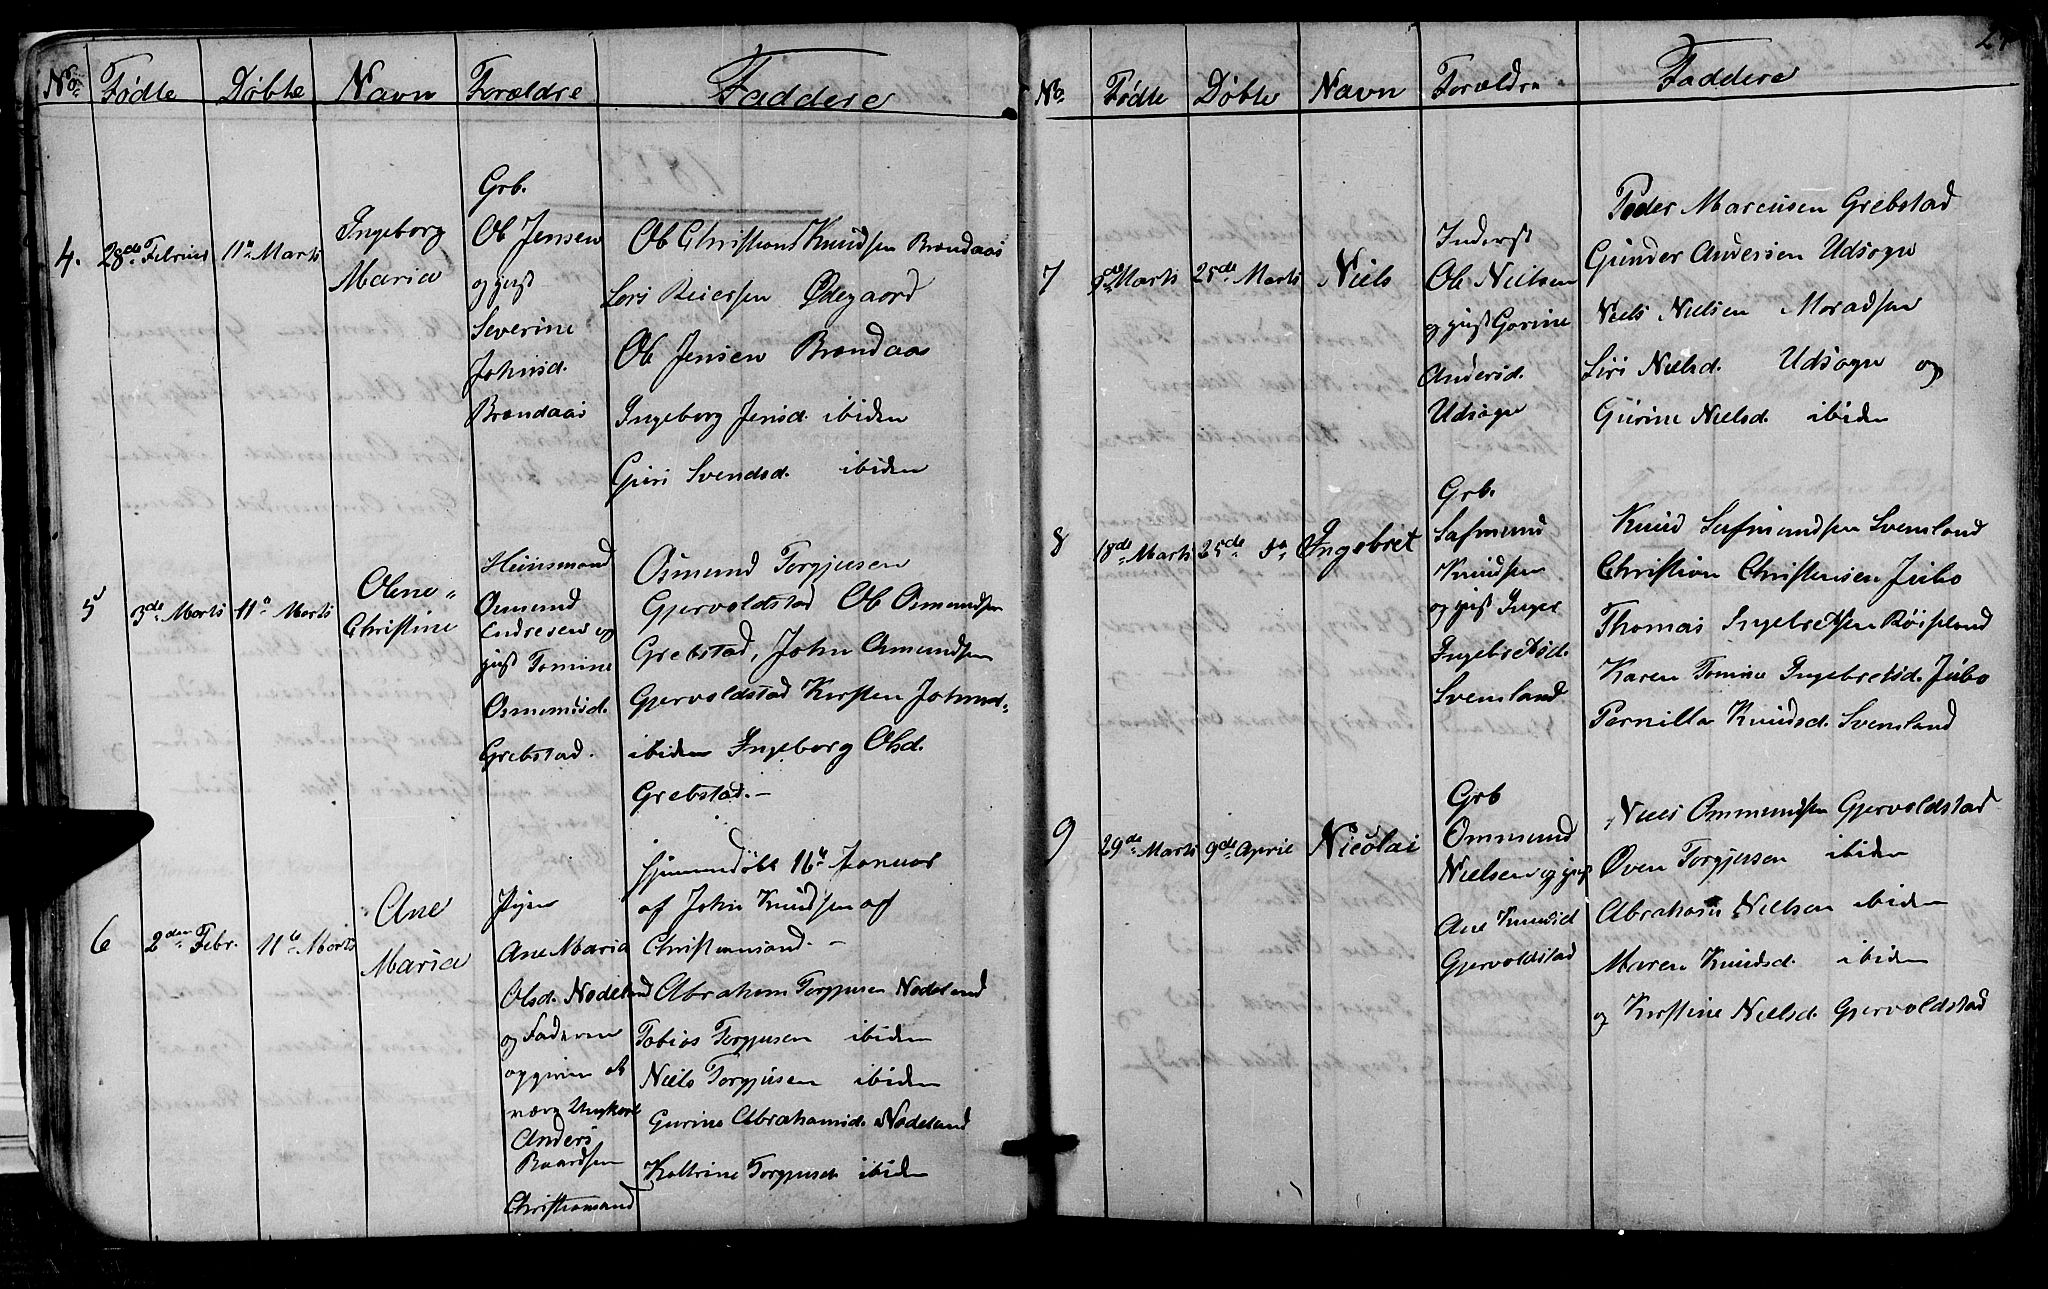 No. Fødte Døbte Navn Forældre Faddere
4. 28de Februar 11te Marts Ingeborg Maria
Grb.
Ole Jensen
og gvst
Severine
Johnsd.
Brændaas
Ole Christians Knudsen Brændaas
Lars Reiersen Ødegaard
Ole Jensen Brændaas
Ingeborg Jensd. ibidem
Guri Svendsd. ibidem
5 3de Marts 11te Marts Olene Christine
Huusmand
Osmund
Endresen og
gvst Tomine
Osmundsd.
Grebstad.
Osmund Torgjusen
Gjervoldstad Ole Osmundsen
Grebstad, John Osmundsen
Gjervoldstad Kirsten Johnsd.
ibidem Ingeborg Olsd.
Grebstad.
6 2den Febr. 11te Marts Ane Maria
Pigen
Ane Maria
Olsd. Nodeland
og Faderen
opgiven at
være Ungkarl
Anders
Baardsen
Christiansand
hjemmedøbt 16de Januar
af John Knudsen af
Christiansand.
Abraham Torgjusen Nodeland
Tobias Torgjusen ibidem
Niels Torgjusen ibidem
Gurine Abrahamsd. Nodeland
Kattrine Torgjusd. ibidem
No Fødte Døbte Navn Forældre Faddere
7 Marts 25de Marts Niels
Inderst
Ole Nielsen
og gvst Gorine
Andersd.
Udsogn
Peder Marcusen Grebstad
Gunder Andersen Udsogn
Niels Nielsen
Siri Nielsd. Udsogn og
Gurine Nielsd. ibidem
8 18de Marts 25de do Ingebret
Grb.
Salmund
Knudsen
og gvst Inger
Ingebretsd.
Svensland
Knud Salmundsen Svensland
Christian Christensen Julbo
Thomas Ingebretsen Røisland
Karen Tomine Ingebretsd. Julbo
Pernilla Knudsd. Svensland
9 29de Marts 9de April Nicolai
Grb
Ommund
Nielsen og gvst
Ane Knudsd
Gjervoldstad
Niels Ommundsen Gjervoldstad
Oven Torgjusen ibidem
Abraham Nielsen ibidem
Maren Knudsd. ibidem
og Kirstine Nielsd. Gjervoldstad